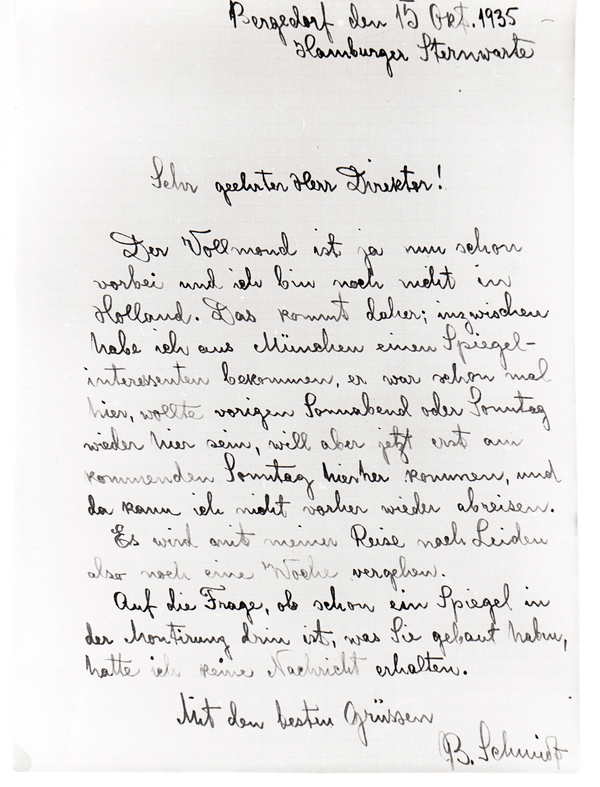 Bergedorf den 15 Okt. 1935
Hamburger Sternwarte
Sehr geehrter Herr Direktor!
Der Vollmond ist ja nun schon
vorbei und ich bin noch nicht in
Holland. Das kommt daher; inzwischen
habe ich aus München einen Spiegel-
interessenten bekommen, er war schon mal
hier, wollte vorigen Sonnabend oder Sonntag
wieder hier sein, will aber jetzt erst am
kommenden Sonntag hierher kommen, und
da kann ich nicht vorher wieder abreisen.
Es wird mit meiner Reise nach Leiden
also noch eine Woche vergehen.
Auf die Frage, ob schon ein Spiegel in
der Montirung drin ist, was Sie gebaut haben,
hatte ich keine Nachricht erhalten.
Mit den besten Grüssen
B. Schmidt